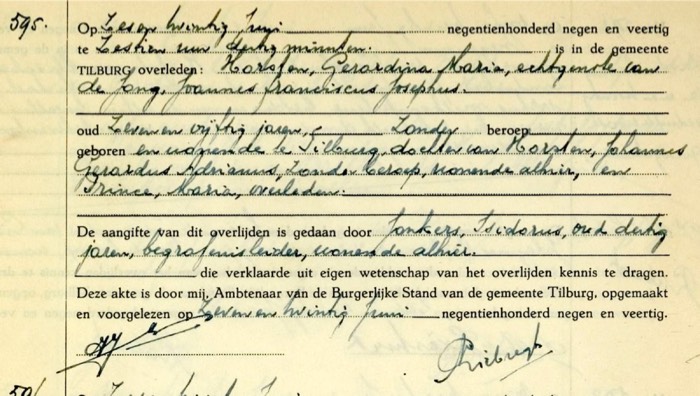 595.
Op Zes en twintig Juni negentienhonderd negen en veertig
te Zestien uur dertig minuten. is in de gemeente
TILBURG overleden: Horsten, Gerardina Maria, echtgenote van
de Jong, Joannes Franciscus Josephus.
oud Zeven en vijftig jaren, Zonder beroep
geboren en wonende te Tilburg, dochter van Horsten, Johannes
Gerardus Adrianus, Zonder beroep, wonende alhier, en
Prince, Maria, overleden.
De aangifte van dit overlijden is gedaan door Jonkers, Isidorus, oud dertig
jaren, begrafenisleider, wonende alhier.
die verklaarde uit eigen wetenschap van het overlijden kennis te dragen.
Deze akte is door mij, Ambtenaar van de Burgerlijke Stand van de gemeente Tilburg, opgemaakt
en voorgelezen op Zeven en twintig Juni negentienhonderd negen en veertig.